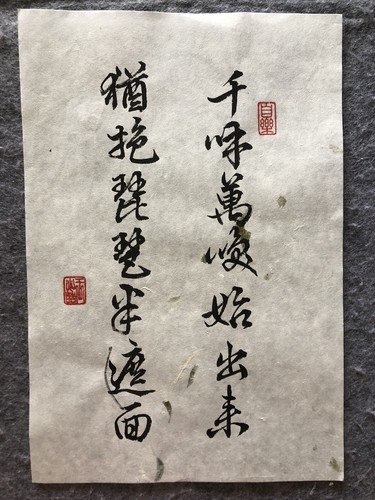 千呼萬喚始出來
猶抱琵琶半遮面